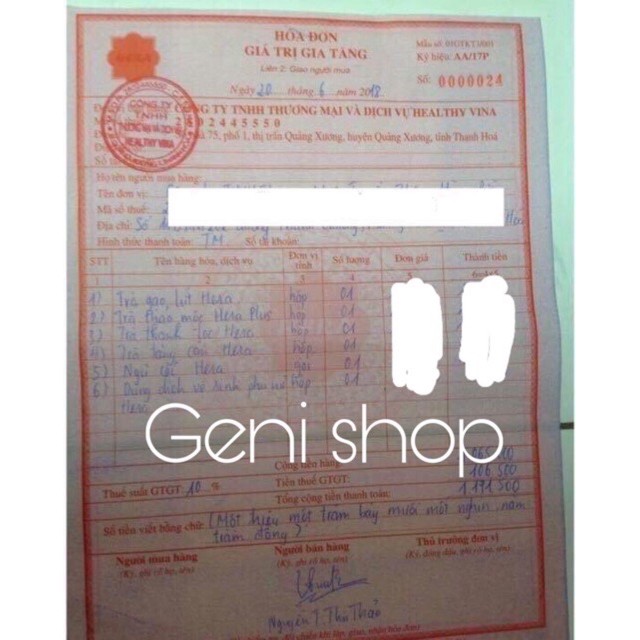 HÓA ĐƠN
GIÁ TRỊ GIA TĂNG
Liên 2: Giao người mua
Ngày 20 tháng 6 năm 2018
Mẫu số: 01GTKT3/001
Ký hiệu: AA/17P
Số: 0000024
CÔNG TY TNHH THƯƠNG MẠI VÀ DỊCH VỤ HEALTHY VINA
2802445550
75, phố 1, thị trấn Quảng Xương, huyện Quảng Xương, tỉnh Thanh Hoá
CÔNG TY
TNHH
THƯƠNG MẠI VÀ DỊCH VỤ
HEALTHY VINA
Họ tên người mua hàng:
Tên đơn vị:
Mã số thuế:
Địa chỉ: Số
Hình thức thanh toán: TM Số tài khoản:
STT Tên hàng hóa, dịch vụ Đơn vị tính Số lượng Đơn giá Thành tiền
1 2 3 4 5 6=4x5
1) Trà gạo lứt Hera hộp 01
2) Trà thảo mộc Hera Plus hộp 01
3) Trà thanh lọc Hera hộp 01
4) Trà tăng cân Hera hộp 01
5) Ngũ cốc Hera gói 01
6) Dung dịch vệ sinh phụ nữ hộp 01
Hera
Geni shop
Cộng tiền hàng: 065000
Thuế suất GTGT: 10 % Tiền thuế GTGT: 106 500
Tổng cộng tiền thanh toán: 1 171 500
Số tiền viết bằng chữ: (Một triệu một trăm bảy mươi mốt nghìn năm
trăm đồng)
Người mua hàng Người bán hàng Thủ trưởng đơn vị
(Ký, ghi rõ họ, tên) (Ký, ghi rõ họ, tên) (Ký, đóng dấu, ghi rõ họ, tên)
Nguyễn T. Thu Thảo